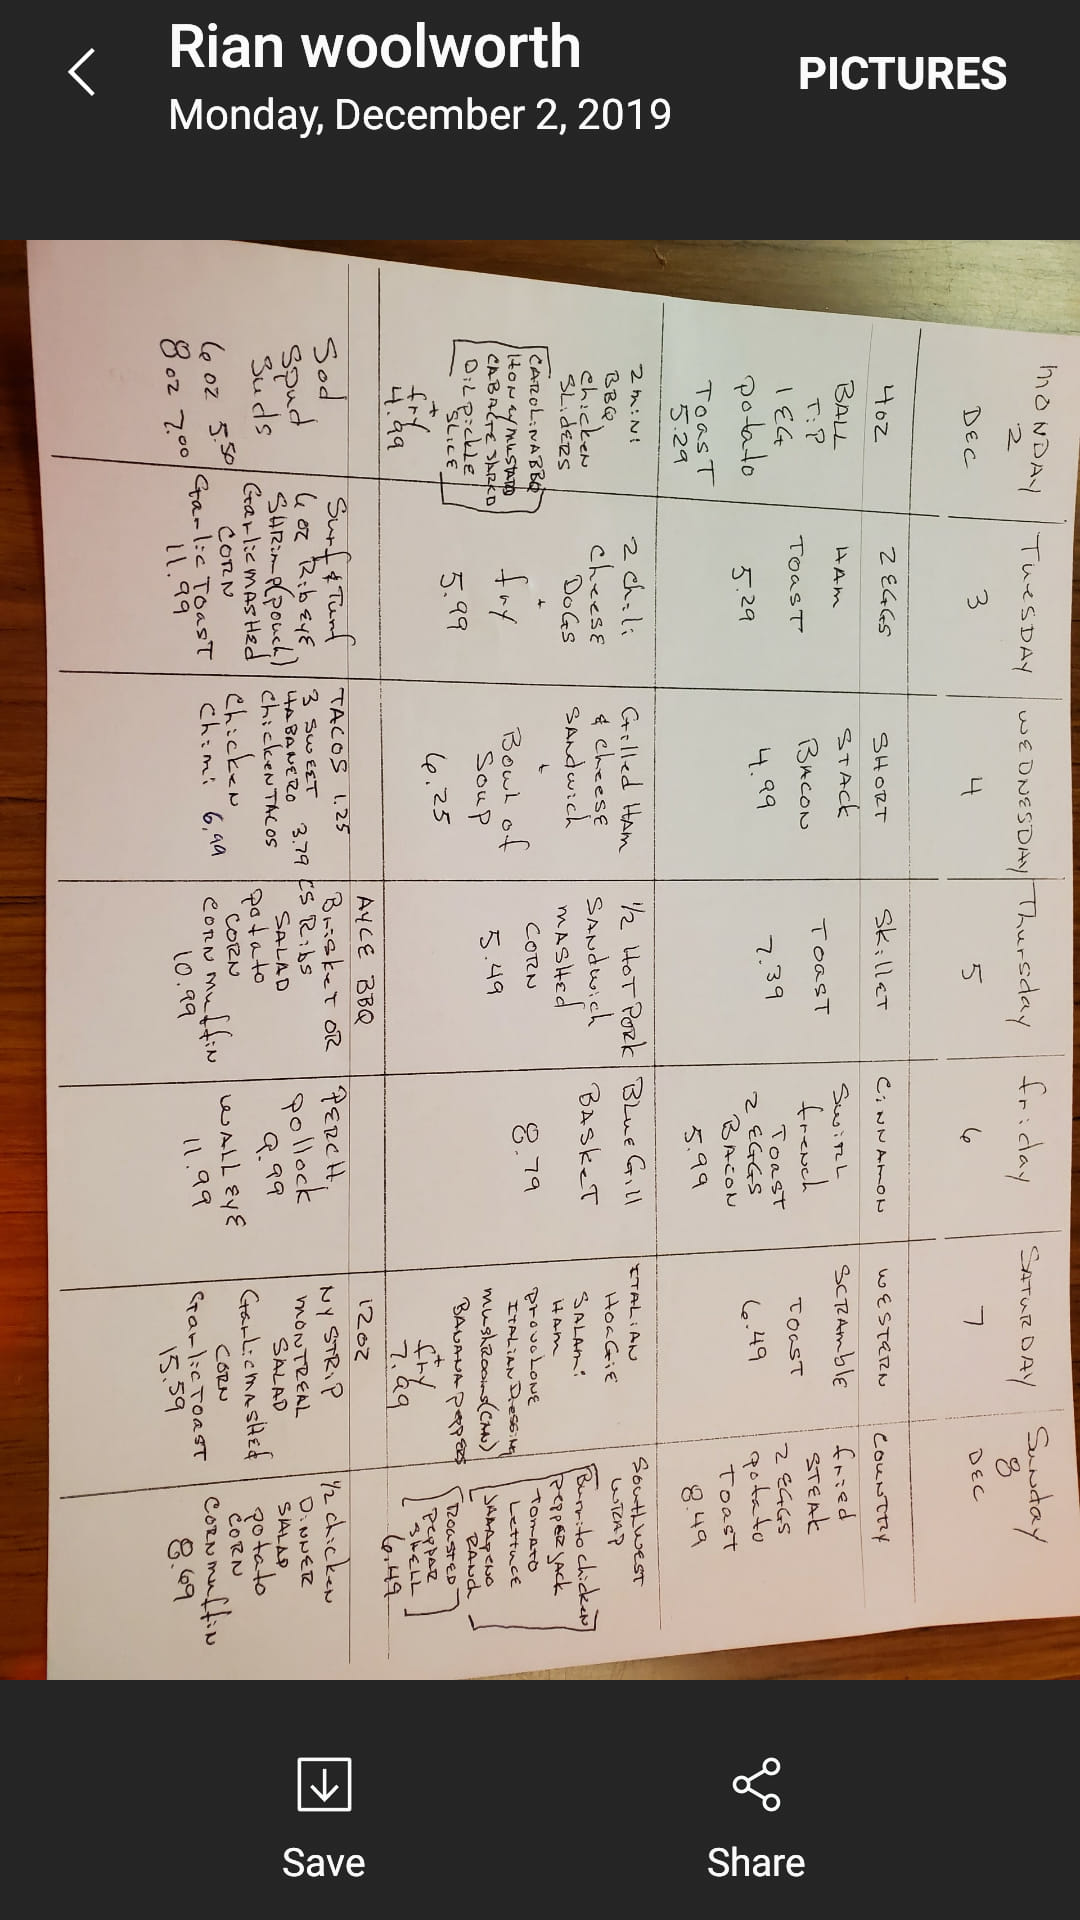 Rian woolworth
Monday, December 2, 2019
PICTURES
MONDAY
2
DEC
TuesDAY
3
WEDNESDAY
4
Thursday
5
friday
6
SATURDAY
7
Sunday
8
DEC
4oz
BALL
TiP
1 EG
potato
TOAST
5.29
2 EGGS
HAM
TOAST
5.29
SHORT
STACK
BACON
4.99
SkillET
TOAST
7.39
CiNNAMON
SwiRL
french
TOAST
2 EGGS
BACON
5.99
WESTERN
SCRAMBLE
TOAST
6.49
COUNTRY
fried
STEAK
2 EGGS
potato
TOAST
8.49
2 MiNi
BBQ
Chicken
SLiDERS
CAROLINA BBQ
HONEY MUSTARD
DiL PiCKLE
SLICE
+
fry
4.99
2 Chili
Cheese
DOGS
+
fry
5.99
Grilled HAM
& Cheese
SANDwich
+
Bowl of
Soup
6.25
1/2 HOT PORK
SANDwich
MASHED
CORN
5.49
BLUE Gill
BASKET
8.79
ITALIAN
HOAGiE
SALAMi
HAM
PROVOLONE
ITALIAN DRESSING
MUSHROOMS (CAN)
BANANA PEPPERS
+
fry
7.99
SOUTHWEST
WRAP
Burrito chicken
PEPPER JACK
TOMATO
Lettuce
JALAPENO
RANCH
ROASTED
PEPPAR
SHELL
6.49
Sod
Spud
Suds
6 oz 5.50
8 oz 7.00
Surf & Turf
6 oz RibEYE
SHRimp (pouch)
Garlic MASHED
CORN
Garlic TOAST
11.99
TACOS 1.25
3 SWEET
HABANERO 3.79
Chicken TACOS
Chicken
Chimi 6.99
AYCE BBQ
Brisket OR
CS Ribs
SALAD
potato
CORN
CORN Muffin
10.99
PERCH,
Pollock
9.99
WALLEYE
11.99
12oz
NY STRiP
MONTREAL
SALAD
Garlic MASHED
CORN
Garlic TOAST
15.59
1/2 chicken
DiNNER
SALAD
potato
CORN
CORN Muffin
8.69
Save
Share